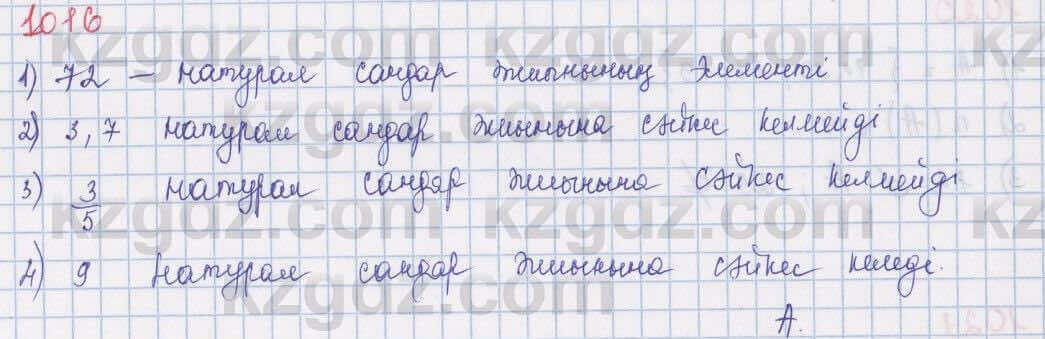 1016
1) 72 – натурал сандар жиынының элементі
2) 3,7 натурал сандар жиынына сәйкес келмейді
3) 3/5 натурал сандар жиынына сәйкес келмейді
4) 9 натурал сандар жиынына сәйкес келеді.
A.
kzgdz.com